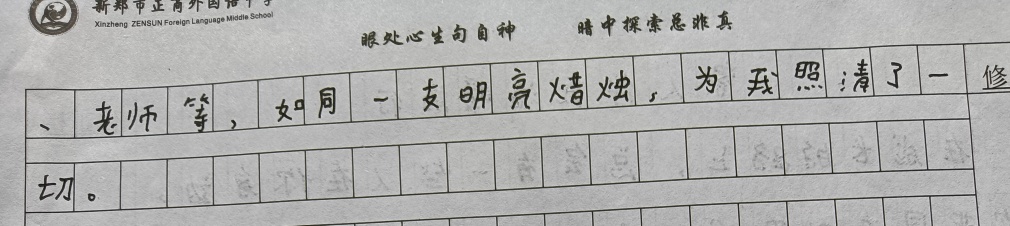 新郑市正商外国语中学
Xinzheng ZENSUN Foreign Language Middle School
眼处心生句自神 暗中探索总非真
、老师等，如同一支明亮蜡烛，为我照清了一
修
切。